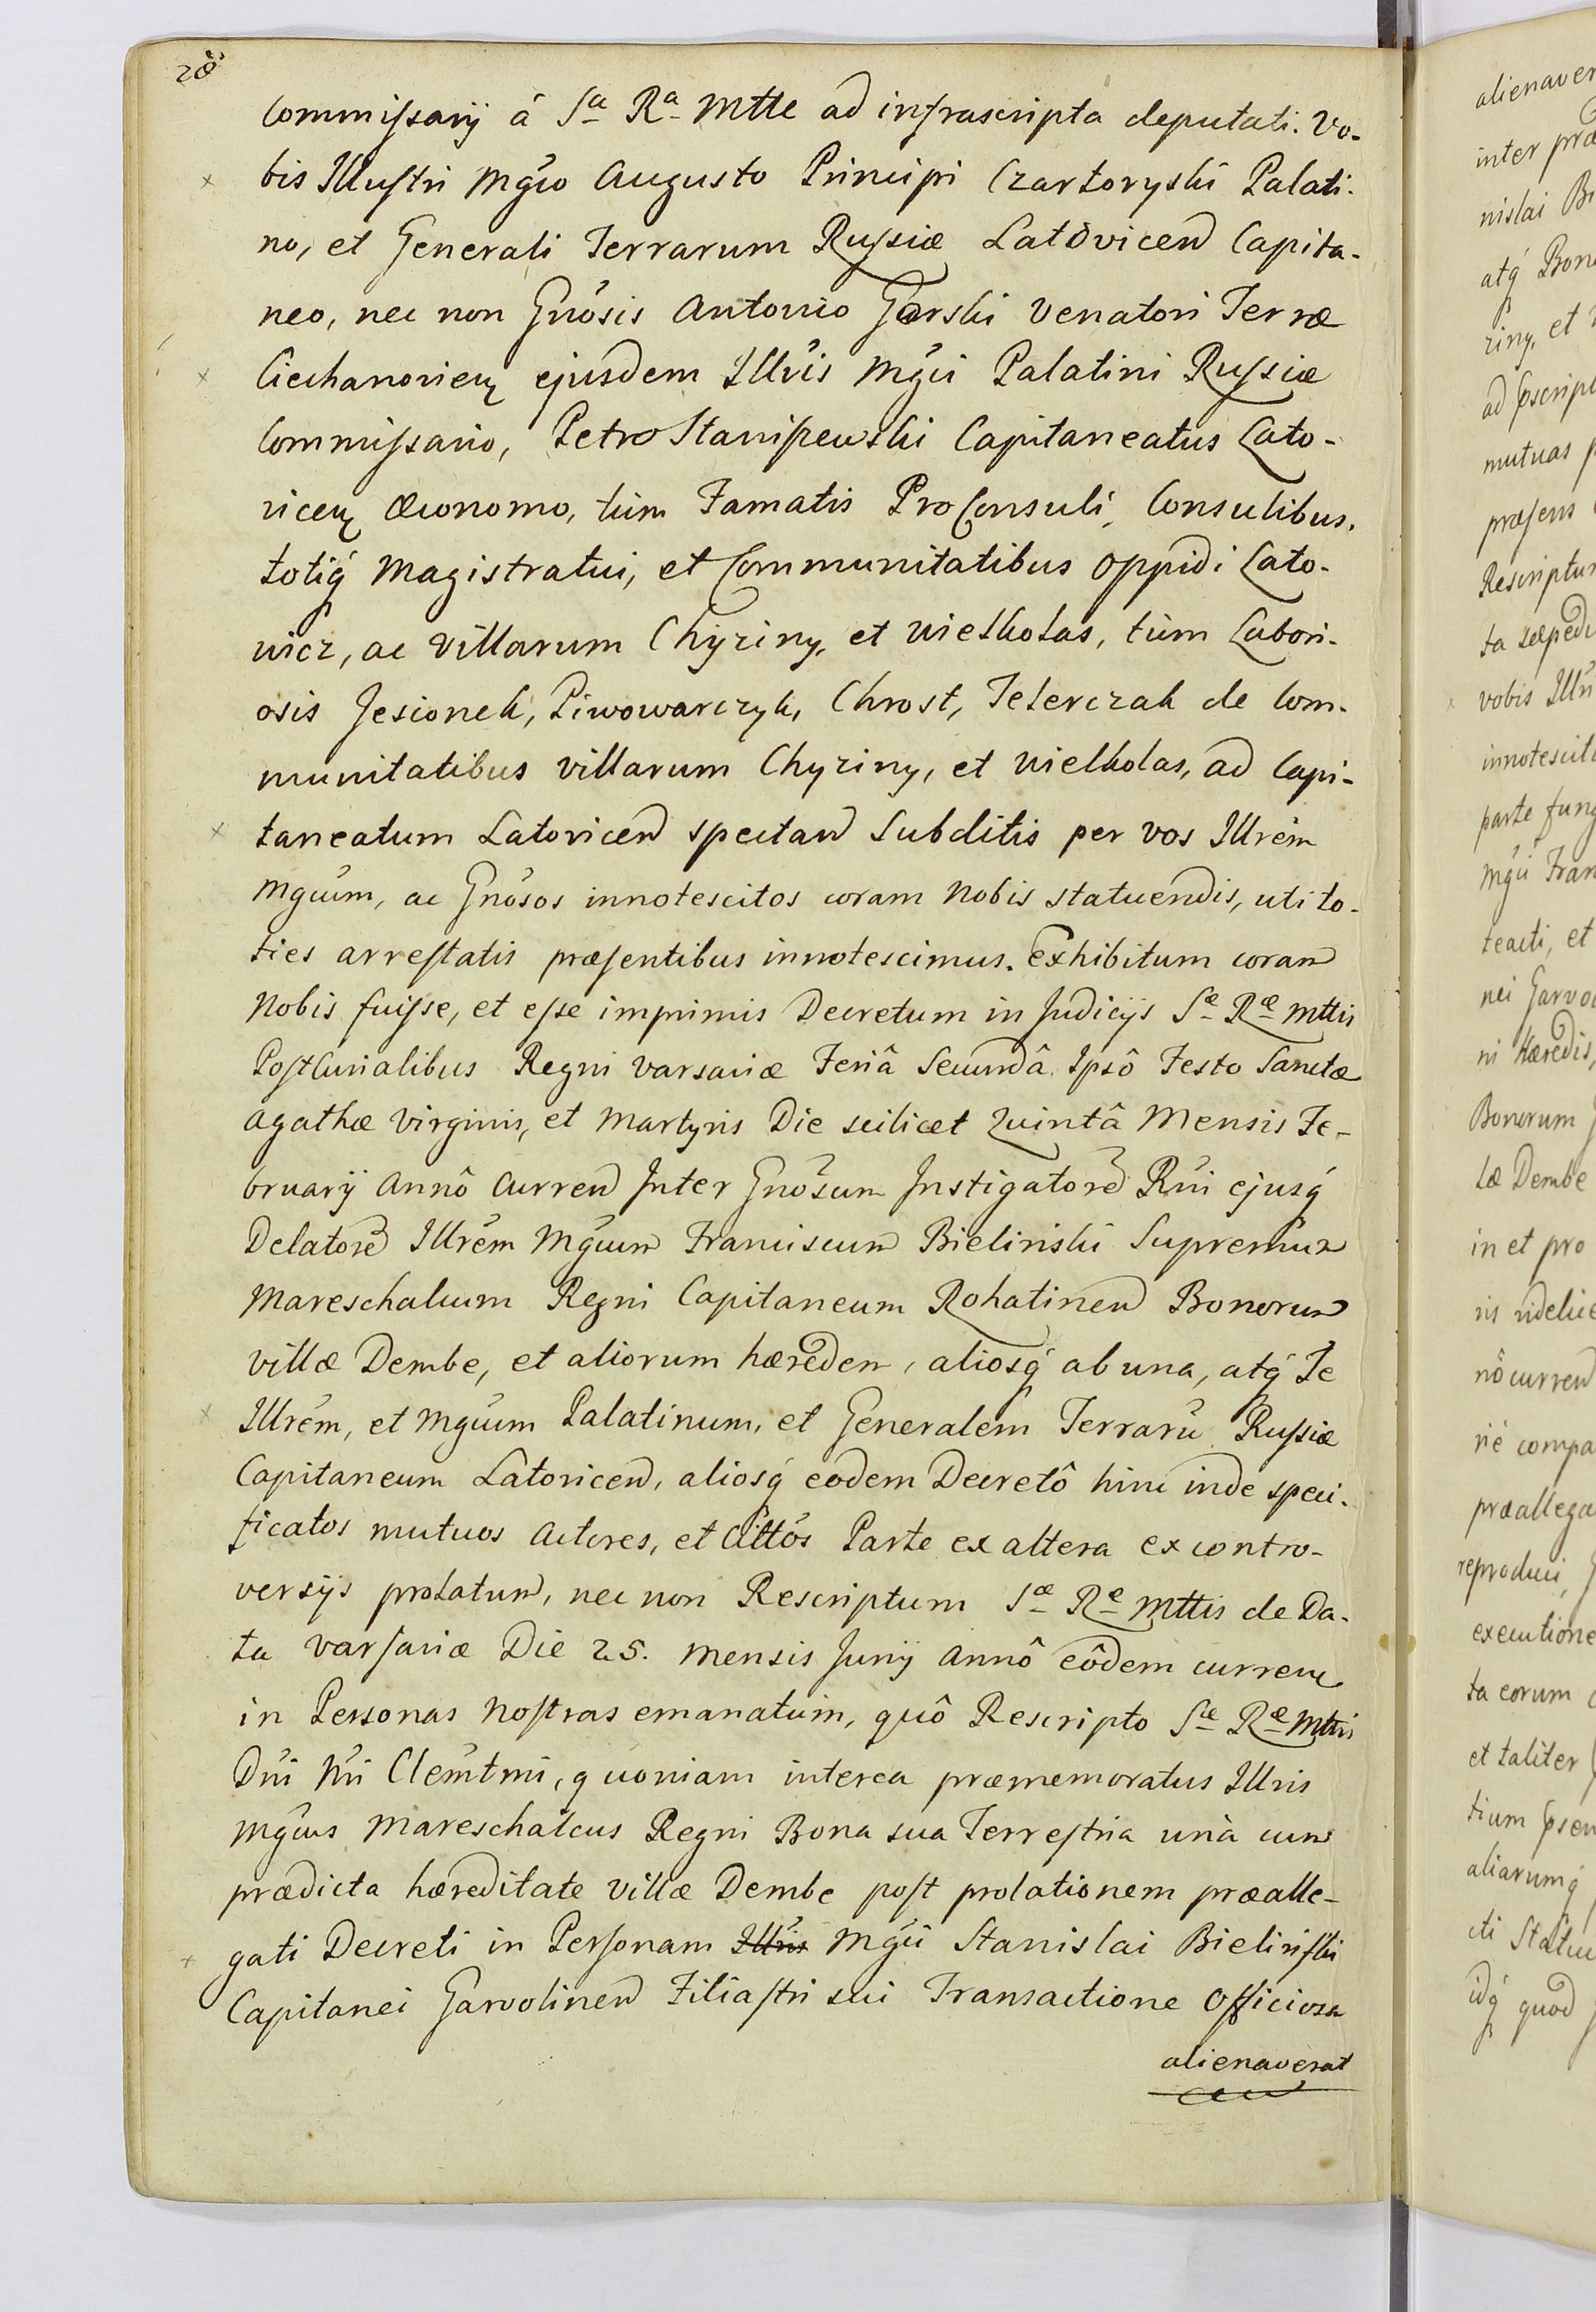 28
Commissarij â Sa Ra Mtte ad infrascripta deputati. Vo-
bis Illustri Mgco Augusto Principi Czartoryski Palati-
no, et Generali Terrarum Russiæ Latovicen Capita-
neo, nec non Gnosis Antonio Gorski Venatori Terræ
Ciechanovien ejusdem Illris Mgci Palatini Russiæ
Commissario, Petro Staniszewski Capitaneatus Lato-
vicen Œconomo, tùm Famatis ProConsuli, Consulibus,
totiq Magistratui, et Communitatibus Oppidi Lato-
wicz, ac Villarum Chyziny, et Wielkolas, tùm Labori-
osis Jesionek, Piwowarczyk, Chrost, Teterczak de Com-
munitatibus Villarum Chyziny, et Wielkolas, ad Capi-
taneatum Latovicen spectan Subditis per vos Illrem
Mgcum, ac Gnosos innotescitos coram Nobis statuendis, uti to-
ties arrestatis præsentibus innotescimus. Exhibitum coram
Nobis fuisse, et esse imprimis Decretum in Judicijs Sæ Ræ Mttis
PostCurialibus Regni Varsaviæ Feriâ Secundâ Ipsô Festo Sanctæ
Agathæ Virginis, et Martyris Die scilicet Quintâ Mensis Fe-
bruarij Annô Curren Inter Gnosum Instigatore Rni ejusq
Delatore Illrem Mgcum Franciscum Bielinski Supremum
Mareschalcum Regni Capitaneum Rohatinen Bonorum
Villæ Dembe, et aliorum hæredem, aliosq ab una, atq Te
Illrem, et Mgcum Palatinum, et Generalem Terraru Russiæ
Capitaneum Latovicen, aliosq eodem Decretô hinc inde speci-
ficatos mutuos Actores, et Cittos Parte ex altera ex contro-
versijs prolatum, nec non Rescriptum Sæ Re Mttis de Da-
ta Varsaviæ Die 25. Mensis Junij Annô eôdem curren
in Personas Nostras emanatum, quô Rescripto Sæ Ræ Mttis
Dni Nri Clemtmi, quoniam interea præmemoratus Illris
Mgcus Mareschalcus Regni Bona sua Terrestria unà cum
prædicta hæreditate Villæ Dembe post prolationem præalle-
gati Decreti in Personam Illris Mgci Stanislai Bielinski
Capitanei Garvolinen Filiastri sui Transactione Officiosa
alienaverat
alienaver
inter præ
nislai Bi
atq Bon
ziny, et
mutuas
præsens
Rescriptu
vobis Illr
parte fung
Mgci Fran
teacti, et
nei Garvo
ni Hæredis,
Bonorum
læ Dembe
in et pro
nô curren
præallega
reproduci,
executione
ta eorum
et taliter
aliarumq
cti Statu
idq quod